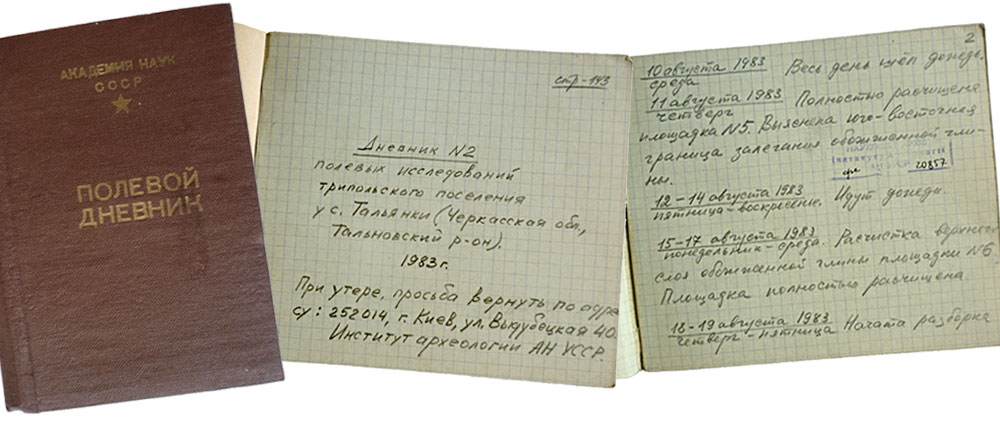 АКАДЕМИЯ НАУК
СССР
ПОЛЕВОЙ
ДНЕВНИК
стр-143
Дневник N2
полевых исследований
трипольского поселения
у с. Тальянки (Черкасская обл.,
Тальновский р-он).
1983 г.
При утере, просьба вернуть по адре
су: 252014, г. Киев, ул. Выдубецкая 40.
Институт археологии АН УССР.
2
10 августа 1983 Весь день шёл дождь.
среда
11 августа 1983 Полностью расчищена
четверг
площадка N5. Выяснена юго-восточная
граница залегания обожженной гли-
ны.
20857
12-14 августа 1983
пятница-воскресение. Идут дожди.
15-17 августа 1983
понедельник-среда. Расчистка верхнего
слоя обожженной глины площадки N6.
Площадка полностью расчищена.
18-19 августа 1983
четверг-пятница Начата разборка